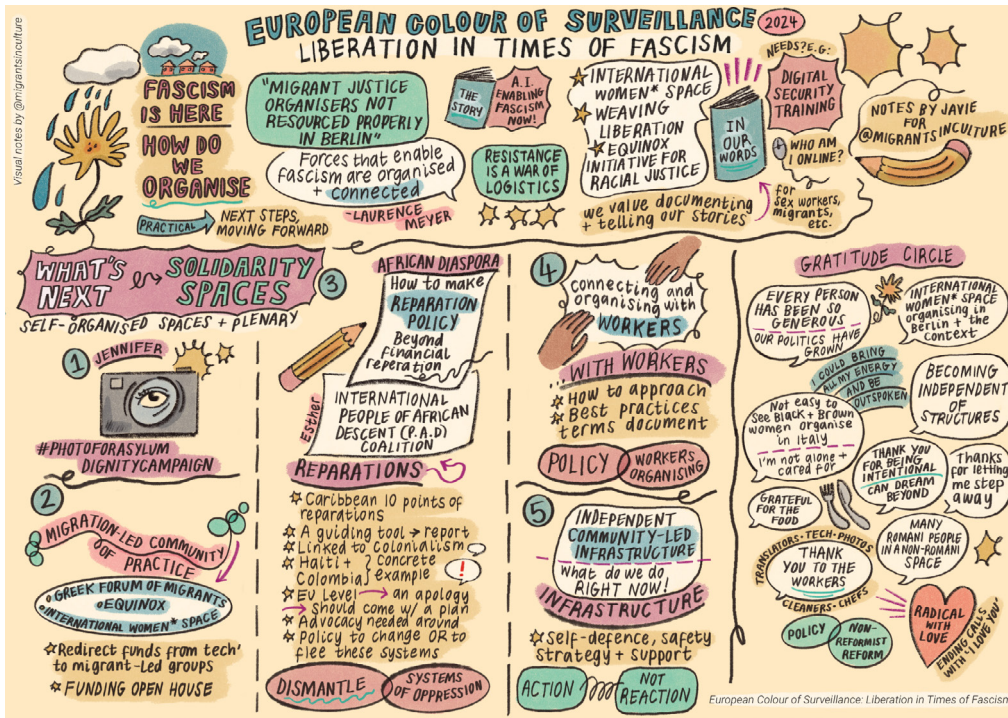 Visual notes by @migrantsinculture
EUROPEAN COLOUR OF SURVEILLANCE
2024
LIBERATION IN TIMES OF FASCISM
FASCISM
IS HERE
HOW DO
WE
ORGANISE
PRACTICAL
NEXT STEPS,
MOVING FORWARD
"MIGRANT JUSTICE
ORGANISERS NOT
RESOURCED PROPERLY
IN BERLIN"
Forces that enable
fascism are organised
+ connected
-LAURENCE
MEYER
THE
STORY
A.I.
ENABLING
FASCISM
NOW!
RESISTANCE
IS A WAR OF
LOGISTICS
INTERNATIONAL
WOMEN* SPACE
WEAVING
LIBERATION
EQUINOX
INITIATIVE FOR
RACIAL JUSTICE
we value documenting
+ telling our stories
IN
OUR
WORDS
NEEDS? E.G:
DIGITAL
SECURITY
TRAINING
WHO AM
I ONLINE?
for
sex workers,
migrants,
etc.
NOTES BY JAVIE
FOR
@MIGRANTSINCULTURE
WHAT'S
NEXT
SOLIDARITY
SPACES
SELF-ORGANISED SPACES + PLENARY
1
JENNIFER
#PHOTOFORASYLUM
DIGNITYCAMPAIGN
2
MIGRATION-LED COMMUNITY
OF
PRACTICE
GREEK FORUM OF MIGRANTS
EQUINOX
INTERNATIONAL WOMEN* SPACE
Redirect funds from tech'
to migrant-Led groups
FUNDING OPEN HOUSE
3
AFRICAN DIASPORA
How to make
REPARATION
POLICY
Beyond
financial
reperation
Esther
INTERNATIONAL
PEOPLE OF AFRICAN
DESCENT (P.A.D)
COALITION
REPARATIONS
Caribbean 10 points of
reparations
A guiding tool → report
Linked to colonialism
Haiti +
Colombia
Concrete
example
!
EU Level → an apology
→ should come w/ a plan
Advocacy needed around
Policy to change OR to
flee these systems
DISMANTLE
SYSTEMS
OF OPPRESSION
4
connecting and
organising with
WORKERS
...WITH WORKERS
How to approach
Best practices
terms document
POLICY
WORKERS
ORGANISING
5
INDEPENDENT
COMMUNITY-LED
INFRASTRUCTURE
What do we do
RIGHT NOW!
INFRASTRUCTURE
Self-defence, safety
strategy + support
ACTION
NOT
REACTION
GRATITUDE CIRCLE
EVERY PERSON
HAS BEEN SO
GENEROUS
OUR POLITICS HAVE
GROWN
INTERNATIONAL
WOMEN* SPACE
organising in
Berlin + the
context
I COULD BRING
ALL MY ENERGY
AND BE
OUTSPOKEN
BECOMING
INDEPENDENT
OF
STRUCTURES
Not easy to
see Black + Brown
women organise
in Italy
I'm not alone +
cared for
THANK YOU
FOR BEING
INTENTIONAL
CAN DREAM
BEYOND
Thanks
for letting
me step
away
GRATEFUL
FOR THE
FOOD
MANY
ROMANI PEOPLE
IN A NON-ROMANI
SPACE
TRANSLATORS-TECH-PHOTOS
THANK
YOU TO THE
WORKERS
CLEANERS-CHEFS
POLICY
NON-
REFORMIST
REFORM
RADICAL
WITH
LOVE
ENDING CALLS
WITH 'I LOVE YOU'
European Colour of Surveillance: Liberation in Times of Fascism